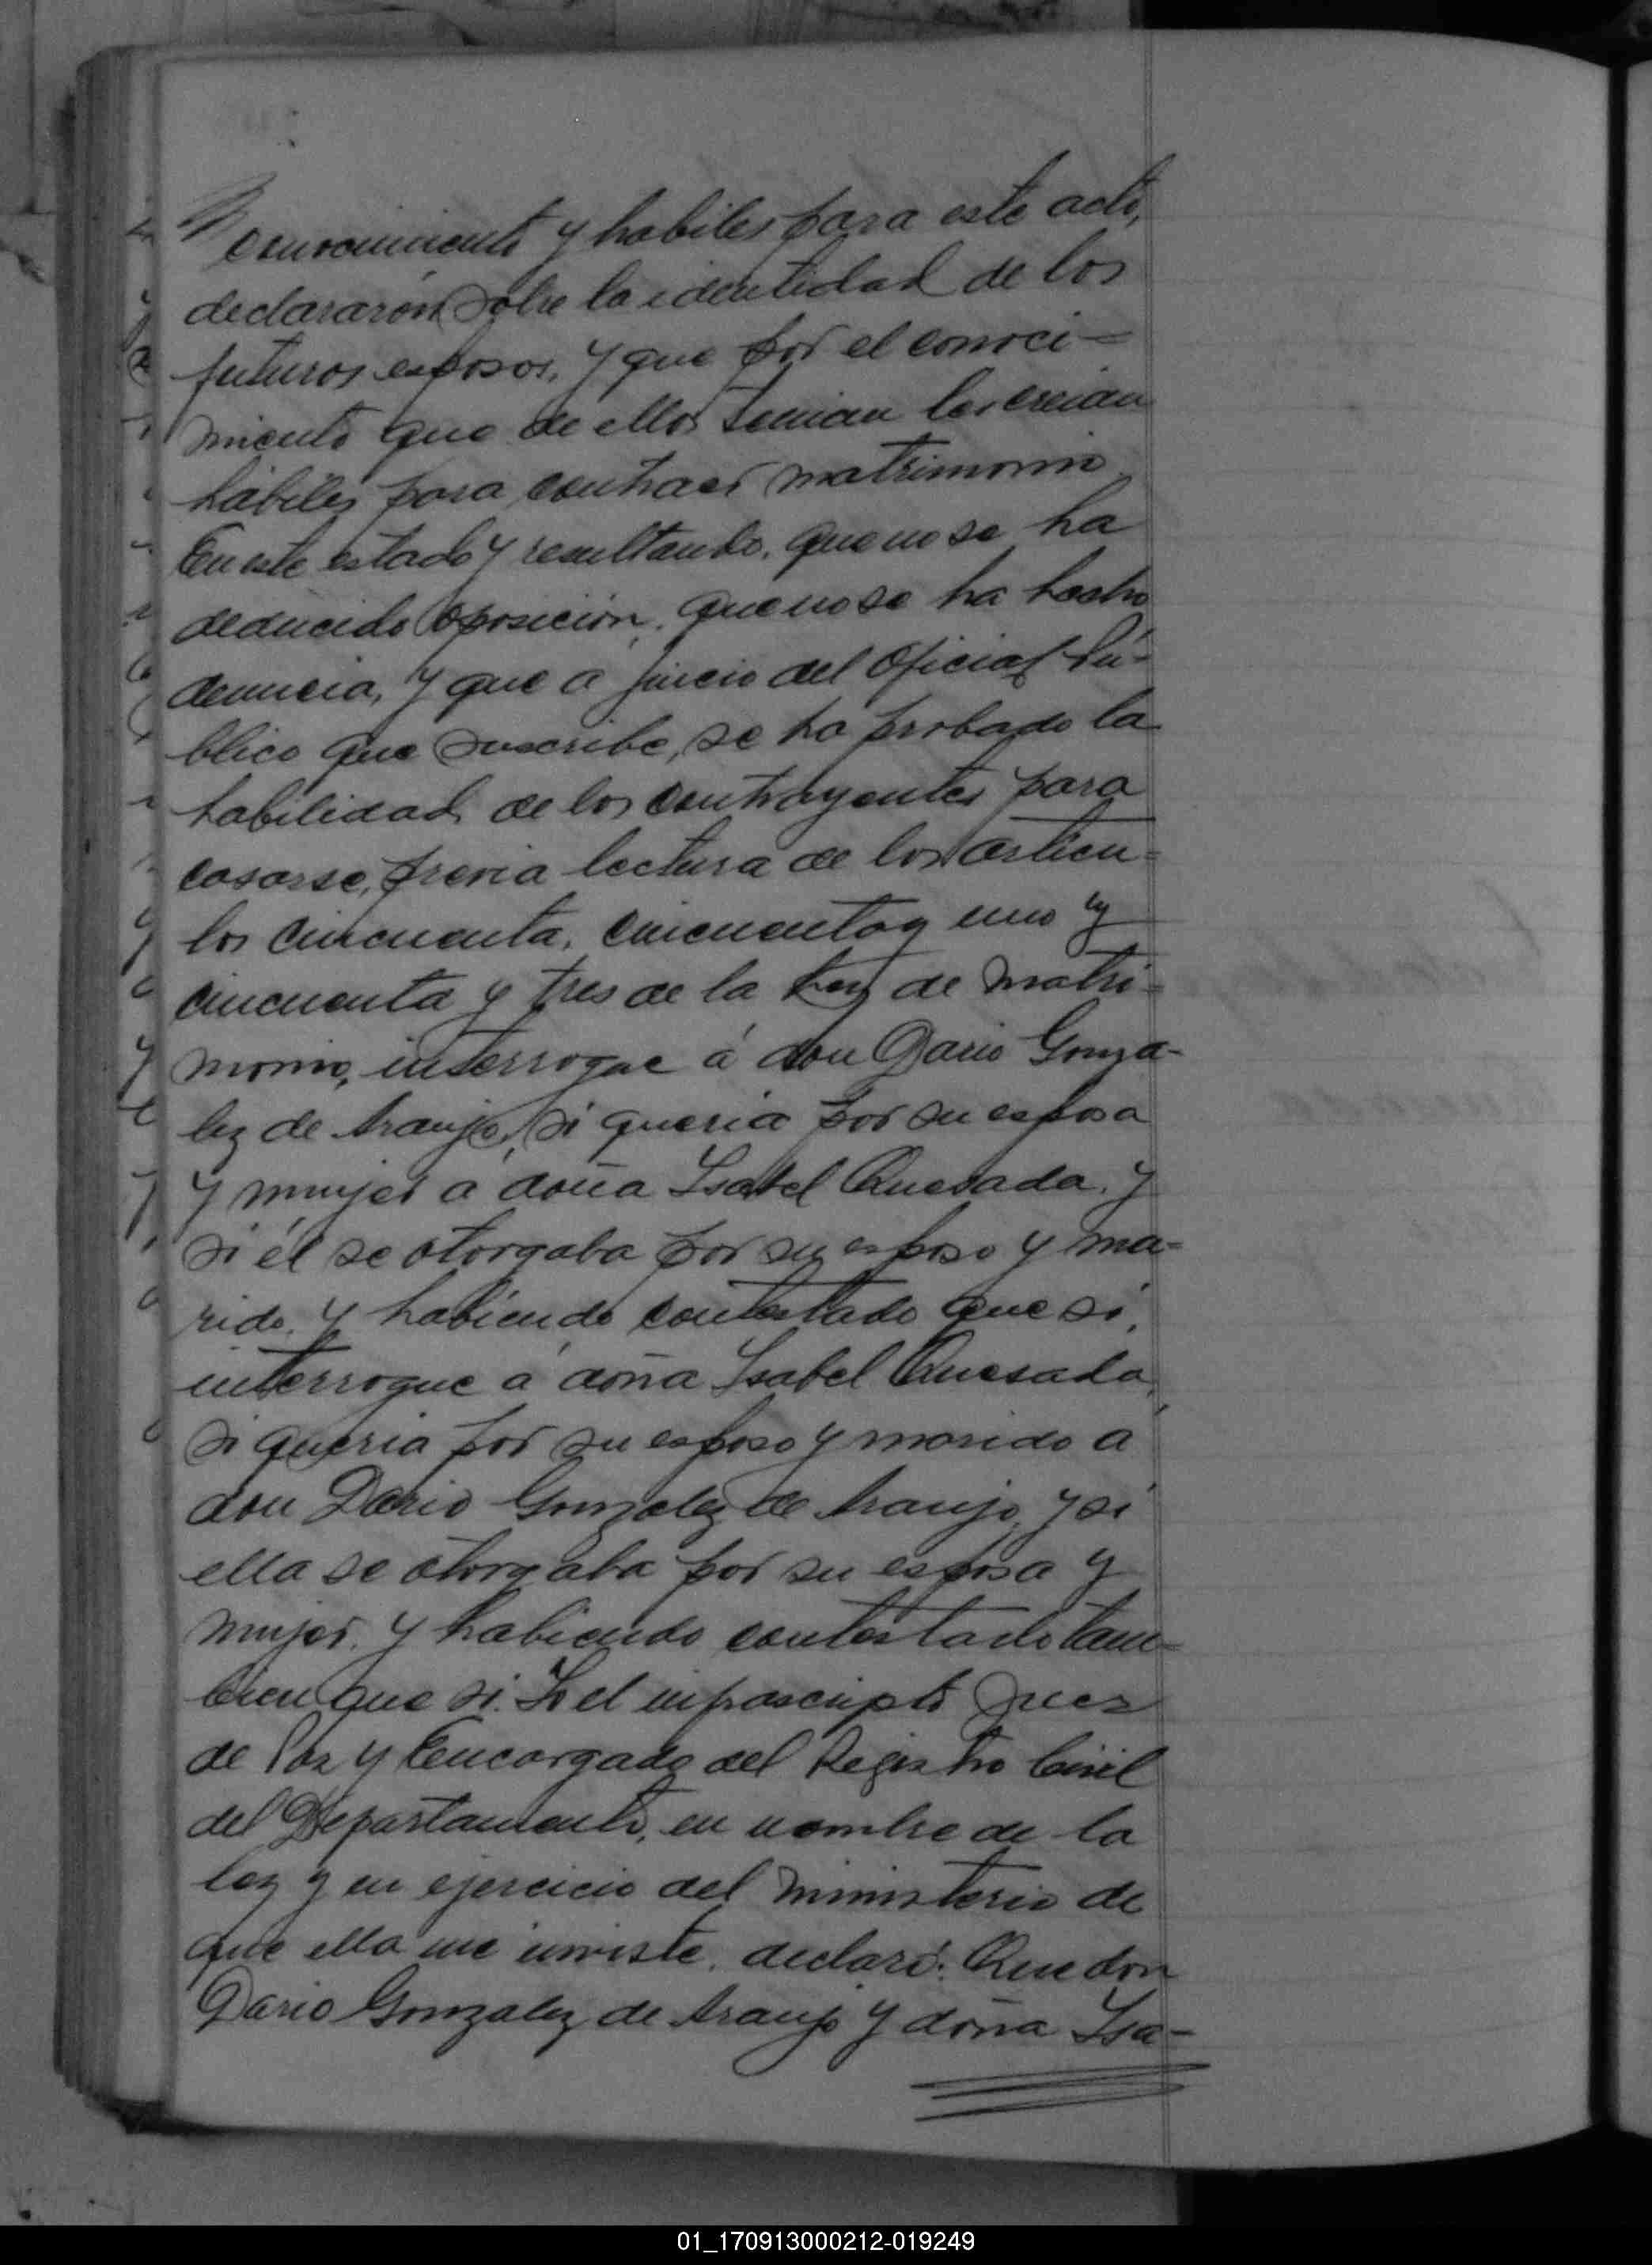 conocimiento y habiles para este acto,
declararón sobre la identidad de los
futuros esposos, y que por el conoci=
miento que de ellos tenian los creian
hábiles para contraer matrimonio.
En este estado y resultando, que no se ha
deducido oposición, que no se ha hecho
denuncia, y que a juicio del Oficial Pú=
blico que suscribe, se ha probado la
habilidad de los contrayentes para
casarse, previa lectura de los articu=
los cincuenta, cincuenta y uno y
cincuenta y tres de la Ley de Matri=
monio, interrogue á don Dario Gonza-
lez de Araujo, si queria por su esposa
y mujer a doña Isabel Quesada, y
si él se otorgaba por su esposo y ma=
rido, y habiendo contestado que si,
interrogue á doña Isabel Quesada,
si queria por su esposo y marido a
don Dario Gonzalez de Araujo, y si
ella se otorgaba por su esposa y
mujer, y habiendo contestado tam=
bien que si. Yo el infrascripto Juez
de Paz y Encargado del Registro Civil
del Departamento, en nombre de la
ley y en ejercicio del ministerio de
que ella me inviste, declaré: Que don
Dario Gonzalez de Araujo y doña Isa-
01_170913000212-019249